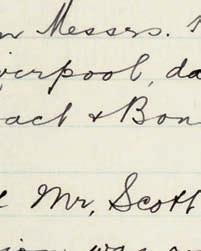 Messrs.
Liverpool, da
act & Bon
Mr, Scott
was